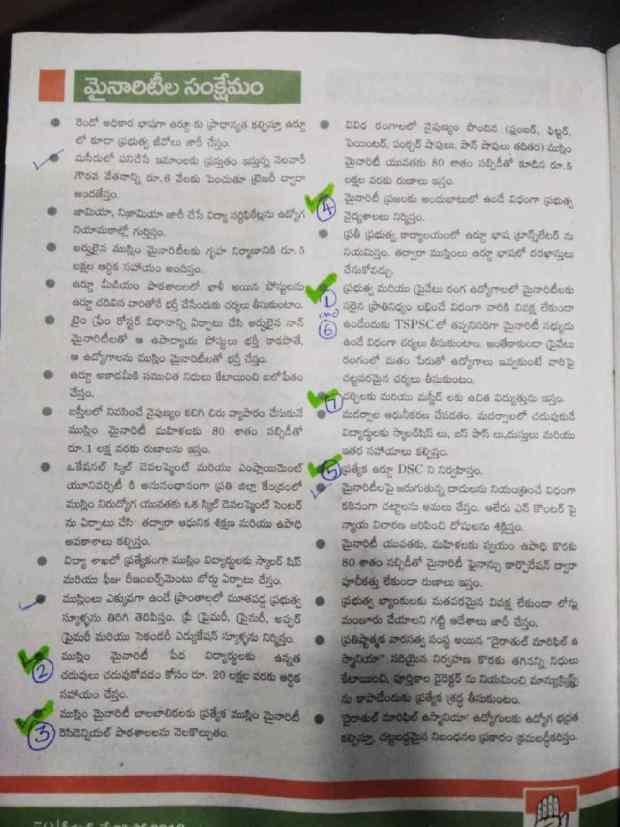 మైనారిటీల సంక్షేమం
రెండో అధికార భాషగా ఉర్దూ కు ప్రాధాన్యత కల్పిస్తూ ఉర్దూ
లో కూడా ప్రభుత్వ జీవోలు జారీ చేస్తాం.
మసీదులో పనిచేసే ఇమాంలకు ప్రస్తుతం ఇస్తున్న నెలవారీ
గౌరవ వేతనాన్ని రూ.6 వేలకు పెంచుతూ ట్రెజరీ ద్వారా
అందజేస్తాం.
జామియా, నిజామియా జారీ చేసే విద్యా సర్టిఫికేట్లను ఉద్యోగ
నియామకాల్లో గుర్తిస్తాం.
అర్హులైన ముస్లిం మైనారిటీలకు గృహ నిర్మాణానికి రూ.5
లక్షల ఆర్థిక సహాయం అందిస్తాం.
ఉర్దూ మీడియం పాఠశాలలలో ఖాళీ అయిన పోస్టులను
ఉర్దూ చదివిన వారితోనే భర్తీ చేసేందుకు చర్యలు తీసుకుంటాం.
టైం ఫ్రేం రోస్టర్ విధానాన్ని ఏర్పాటు చేసి అర్హులైన నాన్
మైనారిటీలతో ఆ ఉపాధ్యాయ పోస్టులు భర్తీ కాకపోతే,
ఆ ఉద్యోగాలను ముస్లిం మైనారిటీలతో భర్తీ చేస్తాం.
ఉర్దూ అకాడమీకి సముచిత నిధులు కేటాయించి బలోపేతం
చేస్తాం.
బస్తీలలో నివసించే నైపుణ్యం కలిగి చిరు వ్యాపారం చేసుకునే
ముస్లిం మైనారిటీ మహిళలకు 80 శాతం సబ్సిడీతో
రూ.1 లక్ష వరకు రుణాలను ఇస్తాం.
ఒకేషనల్ స్కిల్ డెవలప్మెంట్ మరియు ఎంప్లాయిమెంట్
యూనివర్సిటీ కి అనుసంధానంగా ప్రతి జిల్లా కేంద్రంలో
ముస్లిం నిరుద్యోగ యువతకు ఒక స్కిల్ డెవలప్మెంట్ సెంటర్
ను ఏర్పాటు చేసి తద్వారా ఆధునిక శిక్షణ మరియు ఉపాధి
అవకాశాలు కల్పిస్తాం.
విద్యా శాఖలో ప్రత్యేకంగా ముస్లిం విద్యార్థులకు స్కాలర్ షిప్
మరియు ఫీజు రీఇంబర్స్‌మెంటు బోర్డు ఏర్పాటు చేస్తాం.
ముస్లింలు ఎక్కువగా ఉండే ప్రాంతాలలో మూతపడ్డ ప్రభుత్వ
స్కూళ్లను తిరిగి తెరిపిస్తాం. ప్రీ ప్రైమరీ, ప్రైమరీ, అప్పర్
ప్రైమరీ మరియు సెకండరీ ఎడ్యుకేషన్ స్కూళ్లను నిర్మిస్తాం.
ముస్లిం మైనారిటీ పేద విద్యార్థులకు ఉన్నత
2 చదువులు చదువుకోవడం కోసం రూ. 20 లక్షల వరకు ఆర్థిక
సహాయం చేస్తాం.
ముస్లిం మైనారిటీ బాలబాలికలకు ప్రత్యేక ముస్లిం మైనారిటీ
3 రెసిడెన్షియల్ పాఠశాలలను నెలకొల్పుతాం.
వివిధ రంగాలలో నైపుణ్యం పొందిన (ప్లంబర్, ఫిట్టర్,
పెయింటర్, పంక్చర్ షాపులు, పాన్ షాపులు తదితర) ముస్లిం
మైనారిటీ యువతకు 80 శాతం సబ్సిడీతో కూడిన రూ.5
లక్షల వరకు రుణాలు ఇస్తాం.
4 మైనారిటీ ప్రజలకు అందుబాటులో ఉండే విధంగా ప్రభుత్వ
వైద్యశాలలు నిర్మిస్తాం.
ప్రతీ ప్రభుత్వ కార్యాలయంలో ఉర్దూ భాష ట్రాన్స్‌లేటర్ ను
నియమిస్తాం. తద్వారా ముస్లింలు ఉర్దూ భాషలో దరఖాస్తు
చేసుకోవచ్చు.
ప్రభుత్వ మరియు ప్రైవేటు రంగ ఉద్యోగాలలో మైనారిటీలకు
1 సరైన ప్రాతినిధ్యం లభించే విధంగా వారికి వివక్ష లేకుండా
6 ఉండేందుకు TSPSCలో తప్పనిసరిగా మైనారిటీ సభ్యుడు
ఉండే విధంగా చర్యలు తీసుకుంటాం. అంతేకాకుండా ప్రైవేటు
రంగంలో మతం పేరుతో ఉద్యోగాలు ఇవ్వకుంటే వారిపై
చట్టపరమైన చర్యలు తీసుకుంటాం.
7 చర్చిలకు మరియు మస్జీద్ లకు ఉచిత విద్యుత్తును ఇస్తాం.
మదర్సాల ఆధునీకరణ చేపడతాం. మదర్సాలలో చదువుకునే
విద్యార్థులకు స్కాలర్‌షిప్ లు, బస్ పాస్ లు,దుస్తులు మరియు
ఇతర సహాయాలు కల్పిస్తాం.
5 ప్రత్యేక ఉర్దూ DSC ని నిర్వహిస్తాం.
మైనారిటీలపై జరుగుతున్న దాడులను నియంత్రించే విధంగా
కఠినంగా చట్టాలను అమలు చేస్తాం. ఆలేరు ఎన్ కౌంటర్ పై
న్యాయ విచారణ జరిపించి దోషులను శిక్షిస్తాం.
మైనారిటీ యువతకు, మహిళలకు స్వయం ఉపాధి కొరకు
80 శాతం సబ్సిడీతో మైనారిటీ ఫైనాన్సు కార్పొరేషన్ ద్వారా
పూచీకత్తు లేకుండా రుణాలు ఇస్తాం.
ప్రభుత్వ బ్యాంకులకు మతపరమైన వివక్ష లేకుండా లోన్లు
మంజూరు చేయాలని గట్టి ఆదేశాలు జారీ చేస్తాం.
ప్రతిష్ఠాత్మక వారసత్వ సంస్థ అయిన "దైరాతుల్ మారిఫిల్ ఉ
స్మానియా" సరియైన నిర్వహణ కొరకు తగినన్ని నిధులు
కేటాయించి, పూర్తికాల డైరెక్టర్ ను నియమించి మాన్యుస్క్రిప్ట్స్
ను కాపాడేందుకు ప్రత్యేక శ్రద్ధ తీసుకుంటాం.
'దైరాతుల్ మారిఫిల్ ఉస్మానియా' ఉద్యోగులకు ఉద్యోగ భద్రత
కల్పిస్తూ, చట్టబద్ధమైన నిబంధనల ప్రకారం క్రమబద్ధీకరిస్తాం.